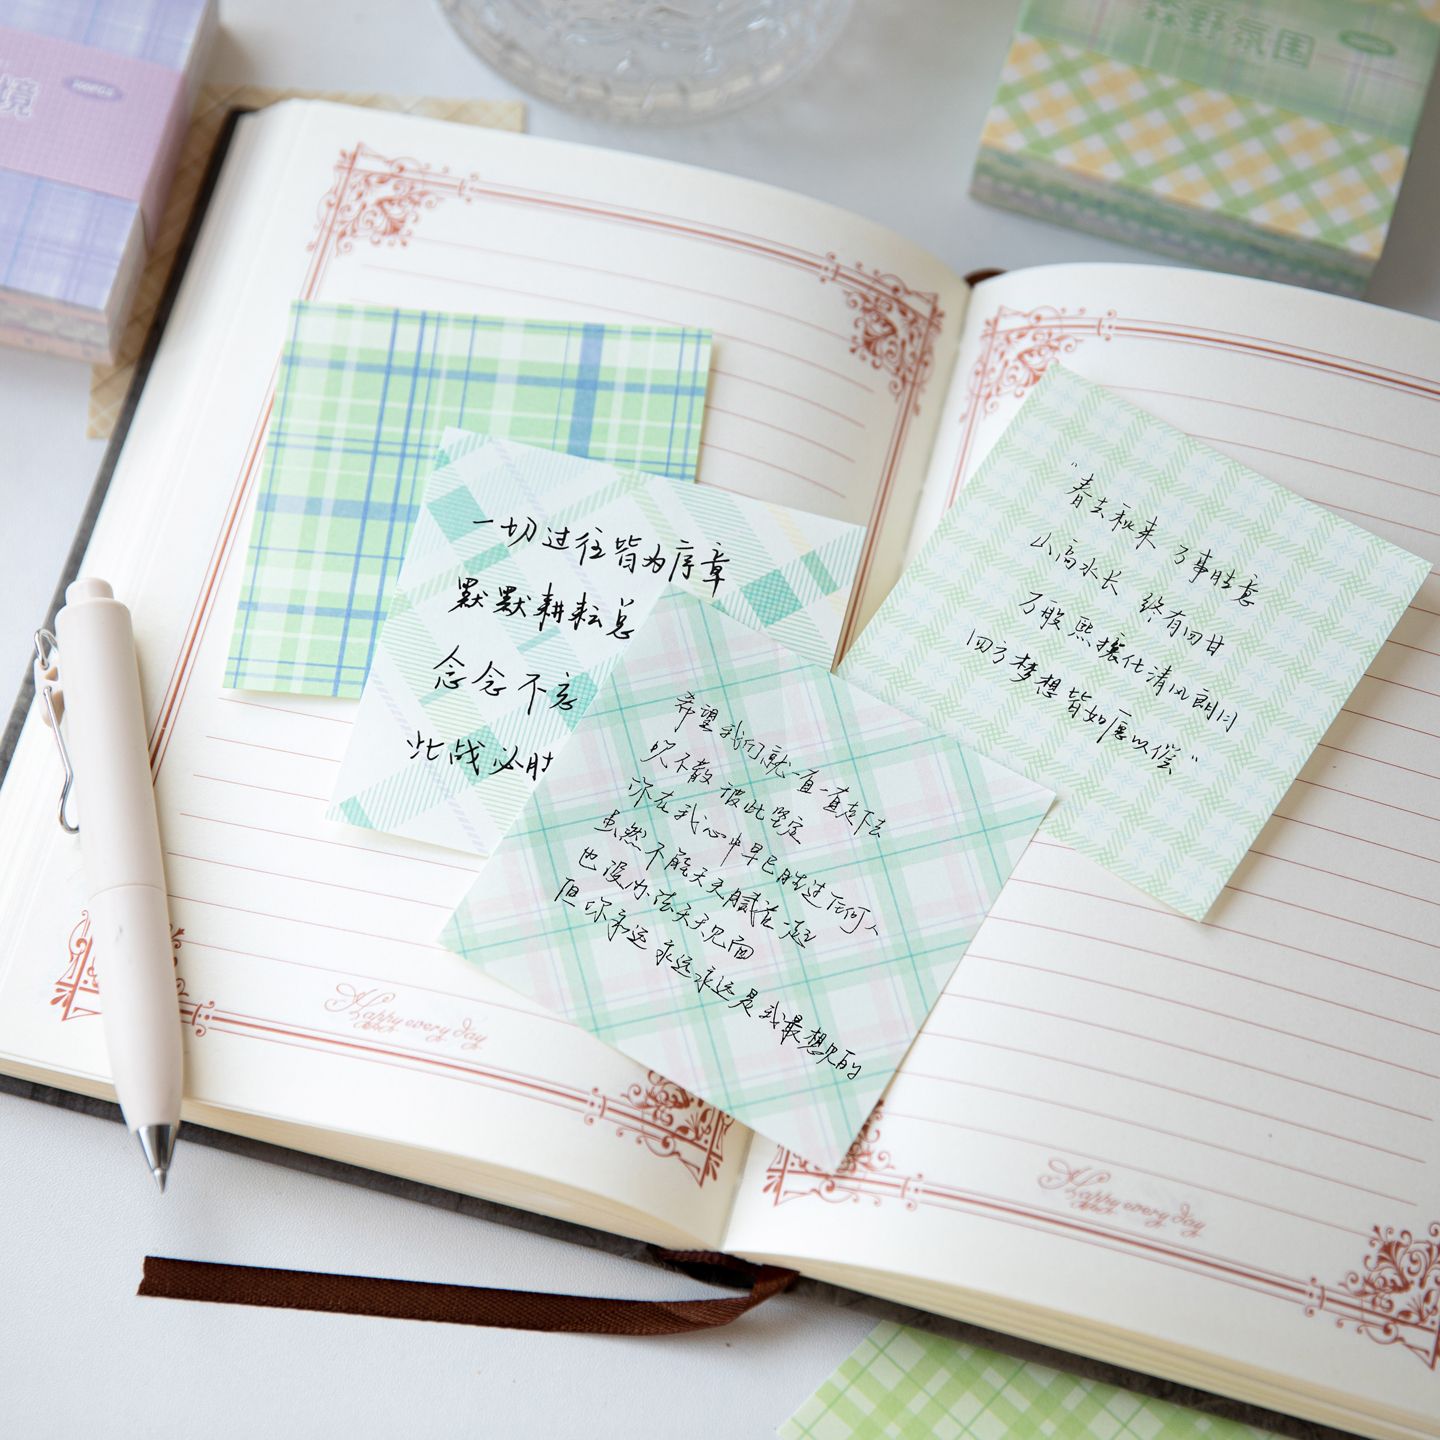 境
100PCS
森野氛围
一切过往皆为序章
默默耕耘总
念念不忘
此战必胜
"春去秋来 万事胜意
山高水长 终有回甘
万般熙攘化清风朗月
四方梦想皆如愿以偿"
希望我们就一直一直走下去
吹不散 彼此坚定
你在我心中早已胜过任何人
虽然不能天天腻在一起
也没办法天天见面
但你永远永远永远是我最想见的
Happy every day
Happy every day